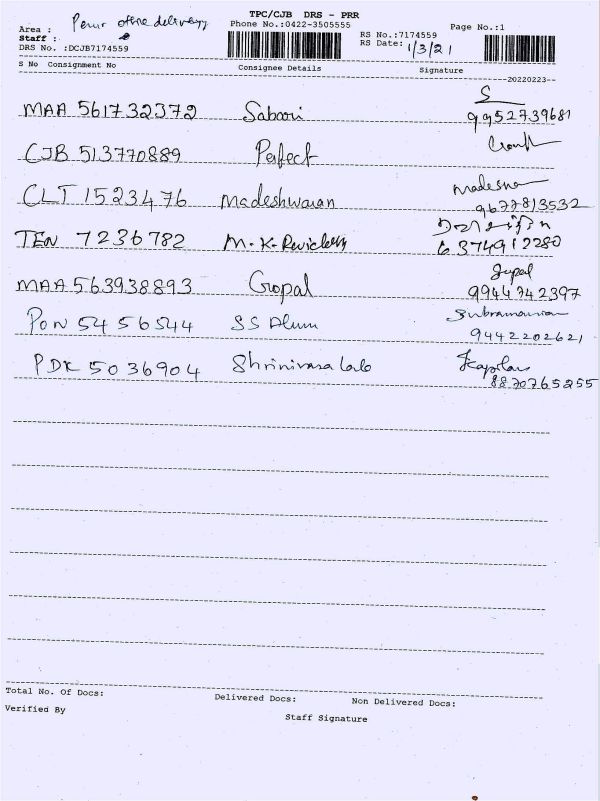 TPC/CJB DRS - PRR
Area : Perur office delivery Phone No.:0422-3505555 Page No.:1
Staff : RS No.:7174559
DRS No. :DCJB7174559 RS Date: 1/3/21
S No Consignment No Consignee Details Signature
20220223
MAA 561732372 Saboori S 9952739681
CJB 513770889 Perfect
CLT 1523476 Madeshwaran Madesh 9677813532
TEN 7236782 M.K. 6374912280
MAA 563938893 Gopal Gopal 9944742397
PON 5456544 SS Alum Subramanian 9442202621
PDK 5036904 Shrinivasa Lab Kapilan 8870765255
Total No. Of Docs: Delivered Docs: Non Delivered Docs:
Verified By Staff Signature